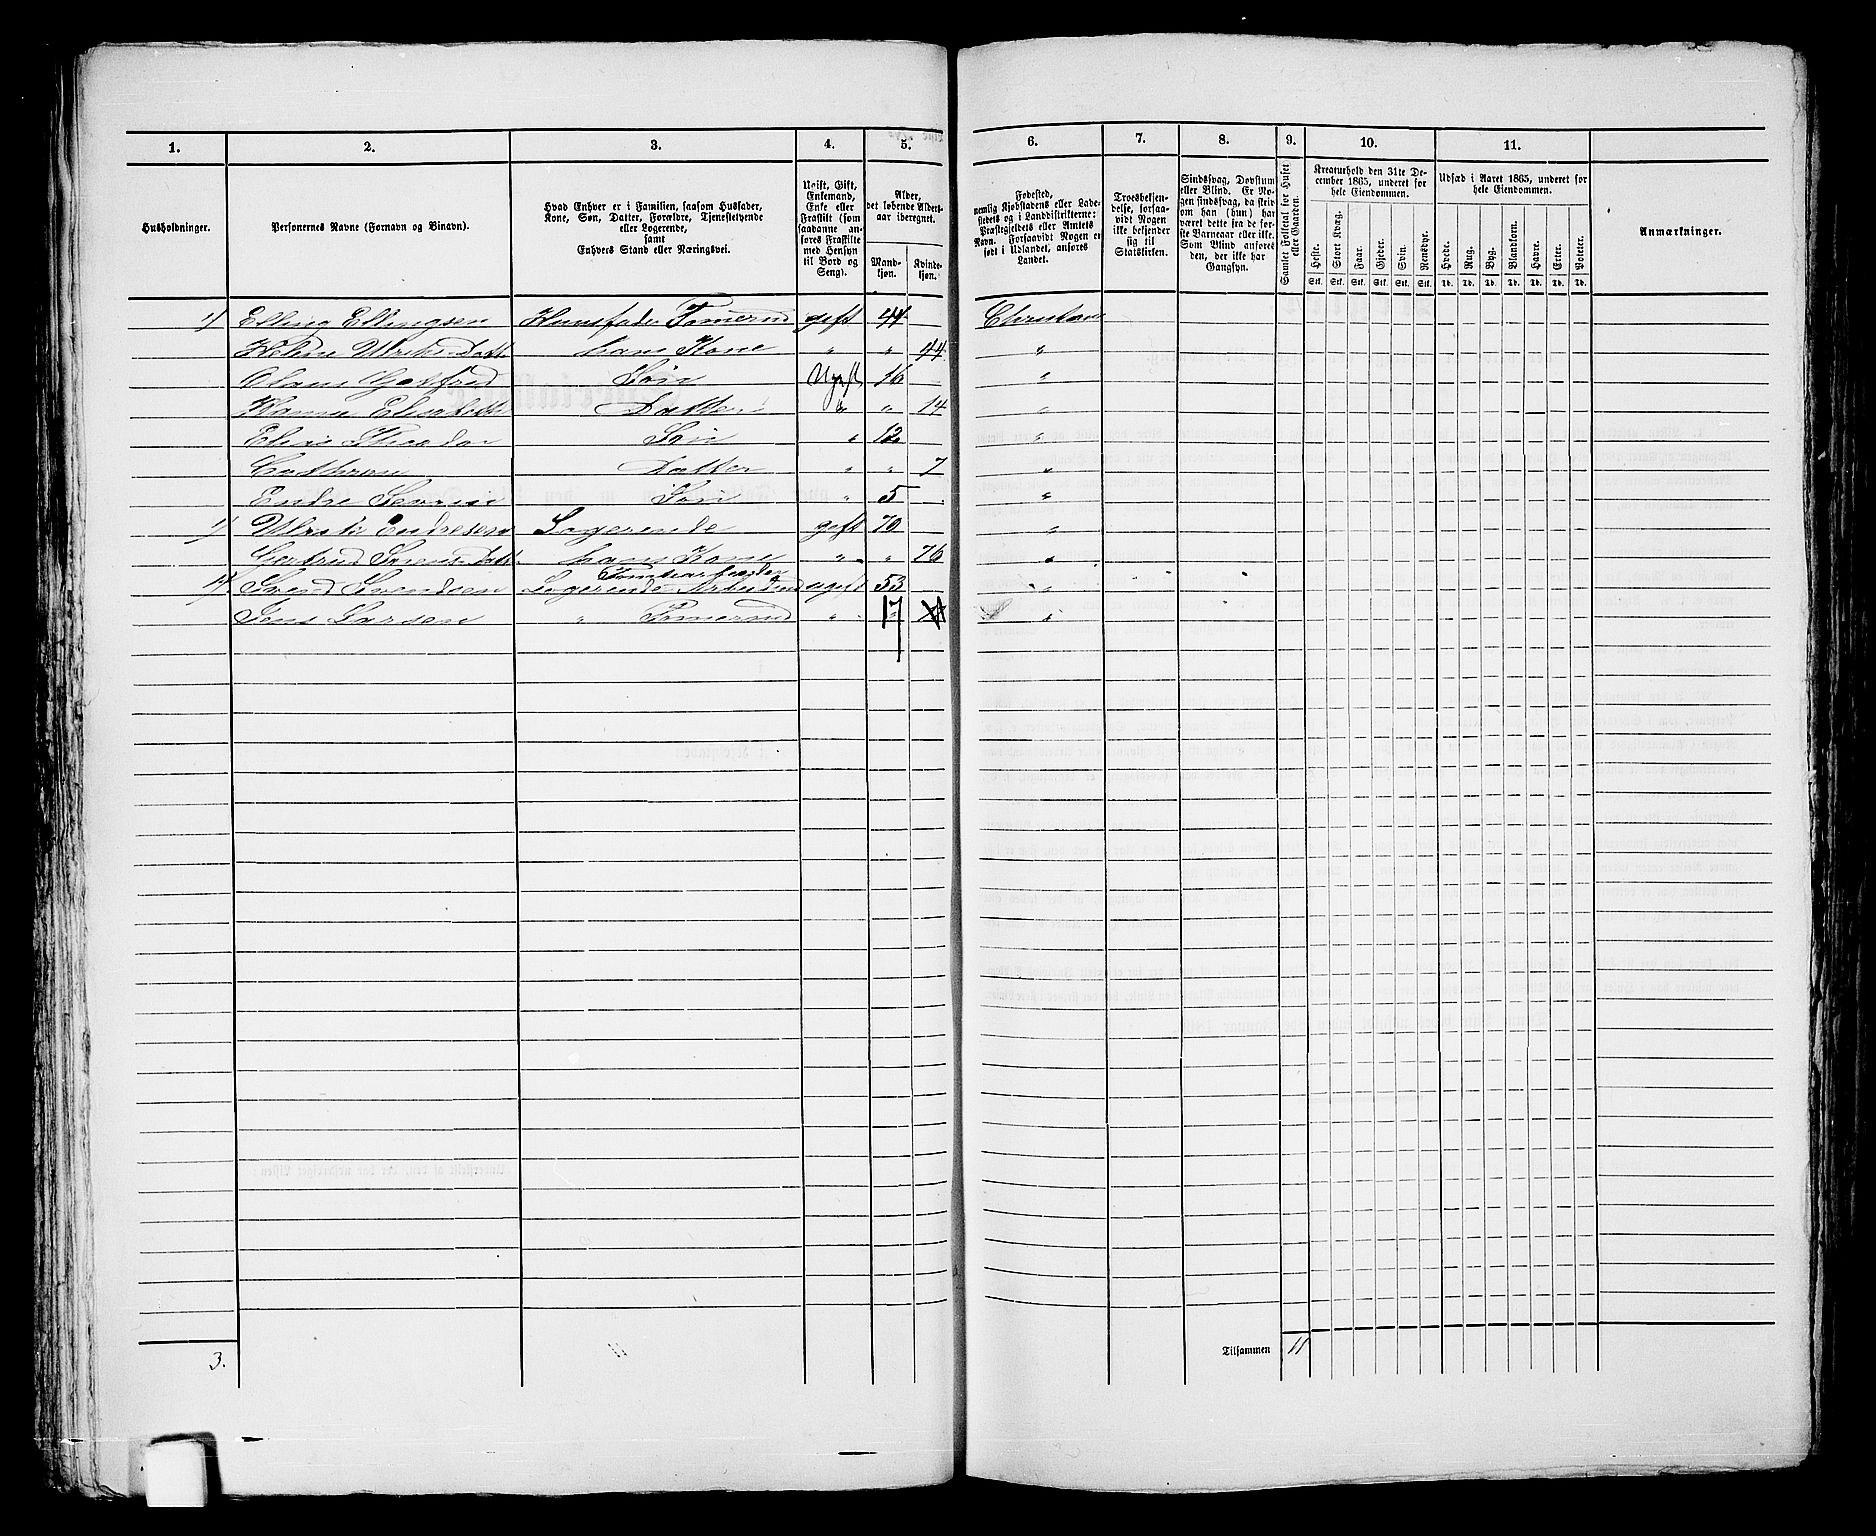 1. 2. 3. 4. 5. 6. 7. 8. 9. 10. 11.
Husholdninger.
Personernes Navne (Fornavn og Binavn).
Hvad Enhver er i Familien, saasom Husfader,
Kone, Søn, Datter, Forældre, Tjenestetyende
eller Logerende,
samt
Enhvers Stand eller Næringsvei.
Ugift, Gift,
Enkemand,
Enke eller
Fraskilt (som
saadanne an-
føres Fraskilte
med Hensyn
til Bord og
Seng).
Alder,
det løbende Alders-
aar iberegnet.
Mand-
kjøn.
Kvinde-
kjøn.
Fødested,
nemlig Kjøbstadens eller Lade-
stedets og i Landdistrikterne:
Præstegjeldets eller Amtets
Navn. Forsaavidt Nogen er
født i Udlandet, anføres
Landet.
Troesbekjen-
delse, forsaa-
vidt Nogen
ikke bekjender
sig til
Statskirken.
Sindssvag, Døvstum
eller Blind. Er No-
gen sindssvag, da skriv
om han (hun) har
været dette fra de før-
ste Barneaar eller ikke.
Som Blind anføres
den, der ikke har
Gangsyn.
Samlet Folketal for Huset
eller Gaarden.
Kreaturhold den 31te De-
cember 1865, underet for
hele Eiendommen.
Heste. Stort Kvæg. Faar. Gjeder. Svin. Rensdyr.
Stk. Stk. Stk. Stk. Stk. Stk.
Udsæd i Aaret 1865, underet for
hele Eiendommen.
Hvede. Rug. Byg. Blandkorn. Havre. Erter. Poteter.
Td. Td. Td. Td. Td. Td. Td.
Anmærkninger.
1) Elling Ellingsen Huusfader Tømermd gift 44
" hans Kone " " 44 "
Søn Ugift 16 "
Datter " " 14 "
Elias Theodor Søn " 12 "
Datter " " 7 "
Endre Søn " 5 "
1) Endresen Logerende gift 70 "
hans Kone " " 76 "
1) Svend Svendsen Logerende ugift 53 "
Jens Larsen " Tømermd " 17 "
3.
Tilsammen 11